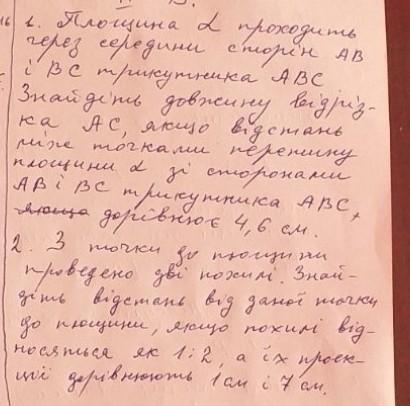 1. Площина α проходить
через середини сторін АВ
і ВС трикутника АВС
Знайдіть довжину відріз-
ка АС, якщо відстань
між точками перетину
площини α зі сторонами
АВ і ВС трикутника АВС,
якщо дорівнює 4,6 см.
2. З точки до площини
проведено дві похилі. Знай-
діть відстань від даної точки
до площини, якщо похилі від-
носяться як 1:2, а їх проек-
ції дорівнюють 1 см і 7 см.